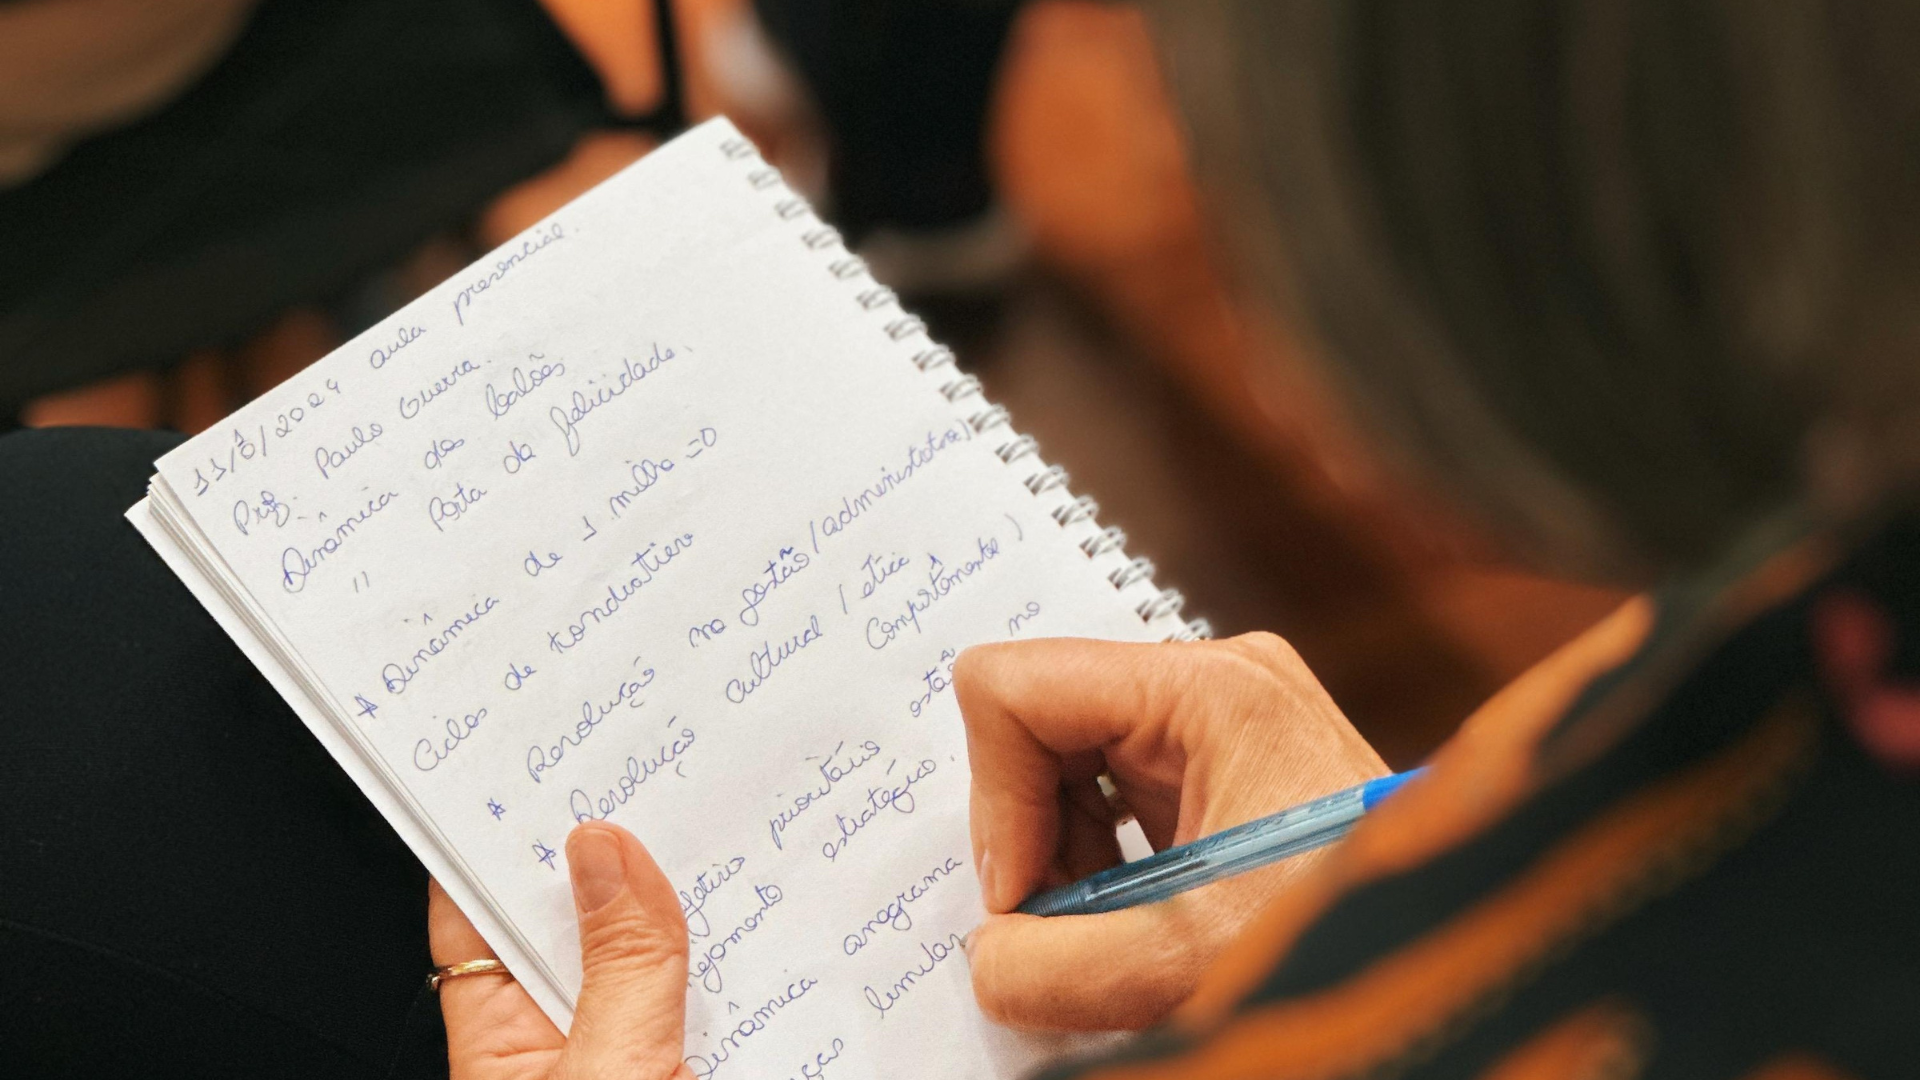 11/6/2024 aula presencial.
Prof. Paulo Guerra.
Dinâmica dos balões
" Porta da felicidade.
* Dinâmica de 1 milhão =0
Ciclos de kondratiev
* Revolução na gestão (administrativa)
* Revolução cultural (ética
Comportamental)
objetivo prioritário está no
nejamento estratégico.
Dinâmica anagrama
ças limitan